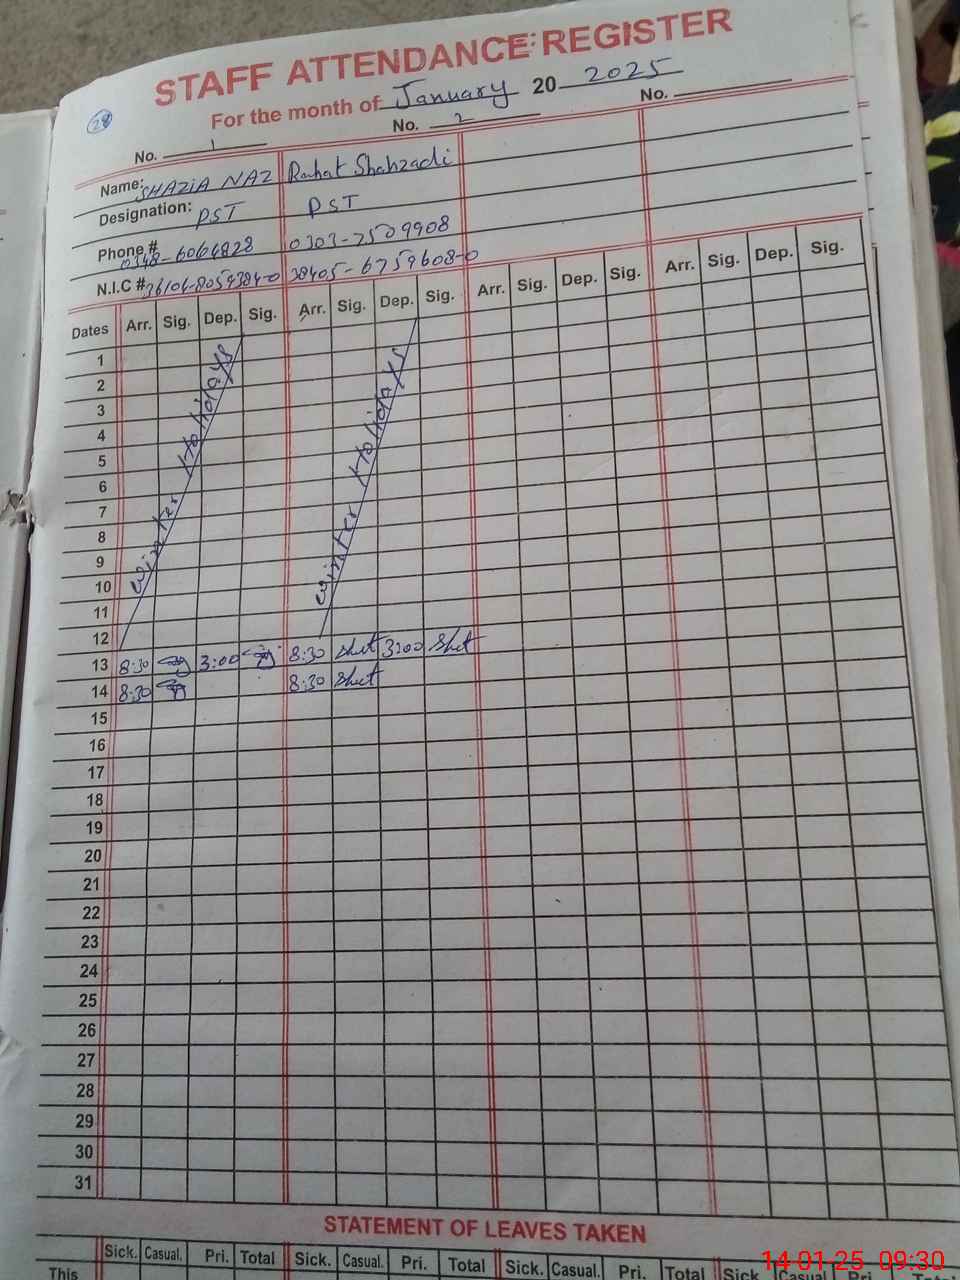 STAFF ATTENDANCE REGISTER
28
For the month of January 20 2025
No. 1 No. 2 No.
Name: SHAZIA NAZ Rahat Shahzadi
Designation: PST PST
Phone # 0348-6064828 0303-7509908
N.I.C # 36104-8059384-0 38405-6759608-0
Dates Arr. Sig. Dep. Sig. Arr. Sig. Dep. Sig. Arr. Sig. Dep. Sig. Arr. Sig. Dep. Sig.
Winter Holidays Winter Holidays
1
2
3
4
5
6
7
8
9
10
11
12
13 8:30 3:00 8:30 3:00
14 8:30 8:30
15
16
17
18
19
20
21
22
23
24
25
26
27
28
29
30
31
STATEMENT OF LEAVES TAKEN
Sick. Casual. Pri. Total Sick. Casual. Pri. Total Sick. Casual. Pri. Total Sick. Casual Pri. Total
This
14 01 25 09:30